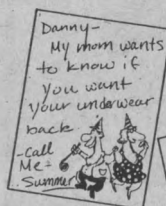 Danny-
My mom wants
to know if
you want
your underwear
back
-Call
Me-
Summer